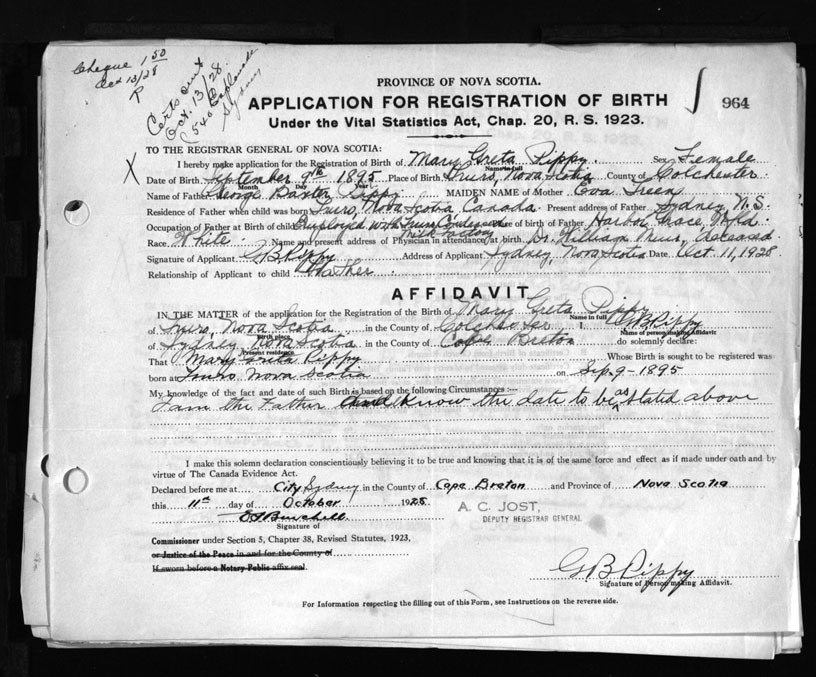 Cheque 1 50
Oct 13/28
P
Certs sent
Oct. 13/28
(540 Esplanade
Sydney
964
PROVINCE OF NOVA SCOTIA.
APPLICATION FOR REGISTRATION OF BIRTH
Under the Vital Statistics Act, Chap. 20, R. S. 1923.
TO THE REGISTRAR GENERAL OF NOVA SCOTIA:
X
I hereby make application for the Registration of Birth of Mary Greta Pippy. Sex Female
Name in full
Date of Birth September 9th 1895 Place of Birth Truro, Nova Scotia County of Colchester
Month Day Year
Name of Father George Baxter Pippy MAIDEN NAME of Mother Eva Green
Residence of Father when child was born Truro, Nova Scotia Canada Present address of Father Sydney N.S.
Occupation of Father at Birth of child Employed with Truro Condensed Milk Factory Place of birth of Father Harbor Grace, Nfld.
Race White Name and present address of Physician in attendance at birth Dr. William Muir, deceased
Signature of Applicant G B Pippy Address of Applicant Sydney, Nova Scotia Date Oct 11, 1928
Relationship of Applicant to child Father
AFFIDAVIT
IN THE MATTER of the application for the Registration of the Birth of Mary Greta Pippy
Name in full
of Truro, Nova Scotia in the County of Colchester I, G B Pippy
Birth place Name of person making Affidavit
of Sydney Nova Scotia in the County of Cape Breton do solemnly declare:
Present residence
That Mary Greta Pippy Whose Birth is sought to be registered was
born at Truro Nova Scotia on Sep. 9 - 1895
My knowledge of the fact and date of such Birth is based on the following Circumstances :—
I am the Father and know the date to be as stated above
I make this solemn declaration conscientiously believing it to be true and knowing that it is of the same force and effect as if made under oath and by
virtue of The Canada Evidence Act.
Declared before me at City Sydney in the County of Cape Breton and Province of Nova Scotia
this 11th day of October 1928
A. C. JOST,
DEPUTY REGISTRAR GENERAL
Burchell
Signature of
Commissioner under Section 5, Chapter 38, Revised Statutes, 1923,
or Justice of the Peace in and for the County of
If sworn before a Notary Public affix seal.
G B Pippy
Signature of Person making Affidavit.
For Information respecting the filling out of this Form, see Instructions on the reverse side.